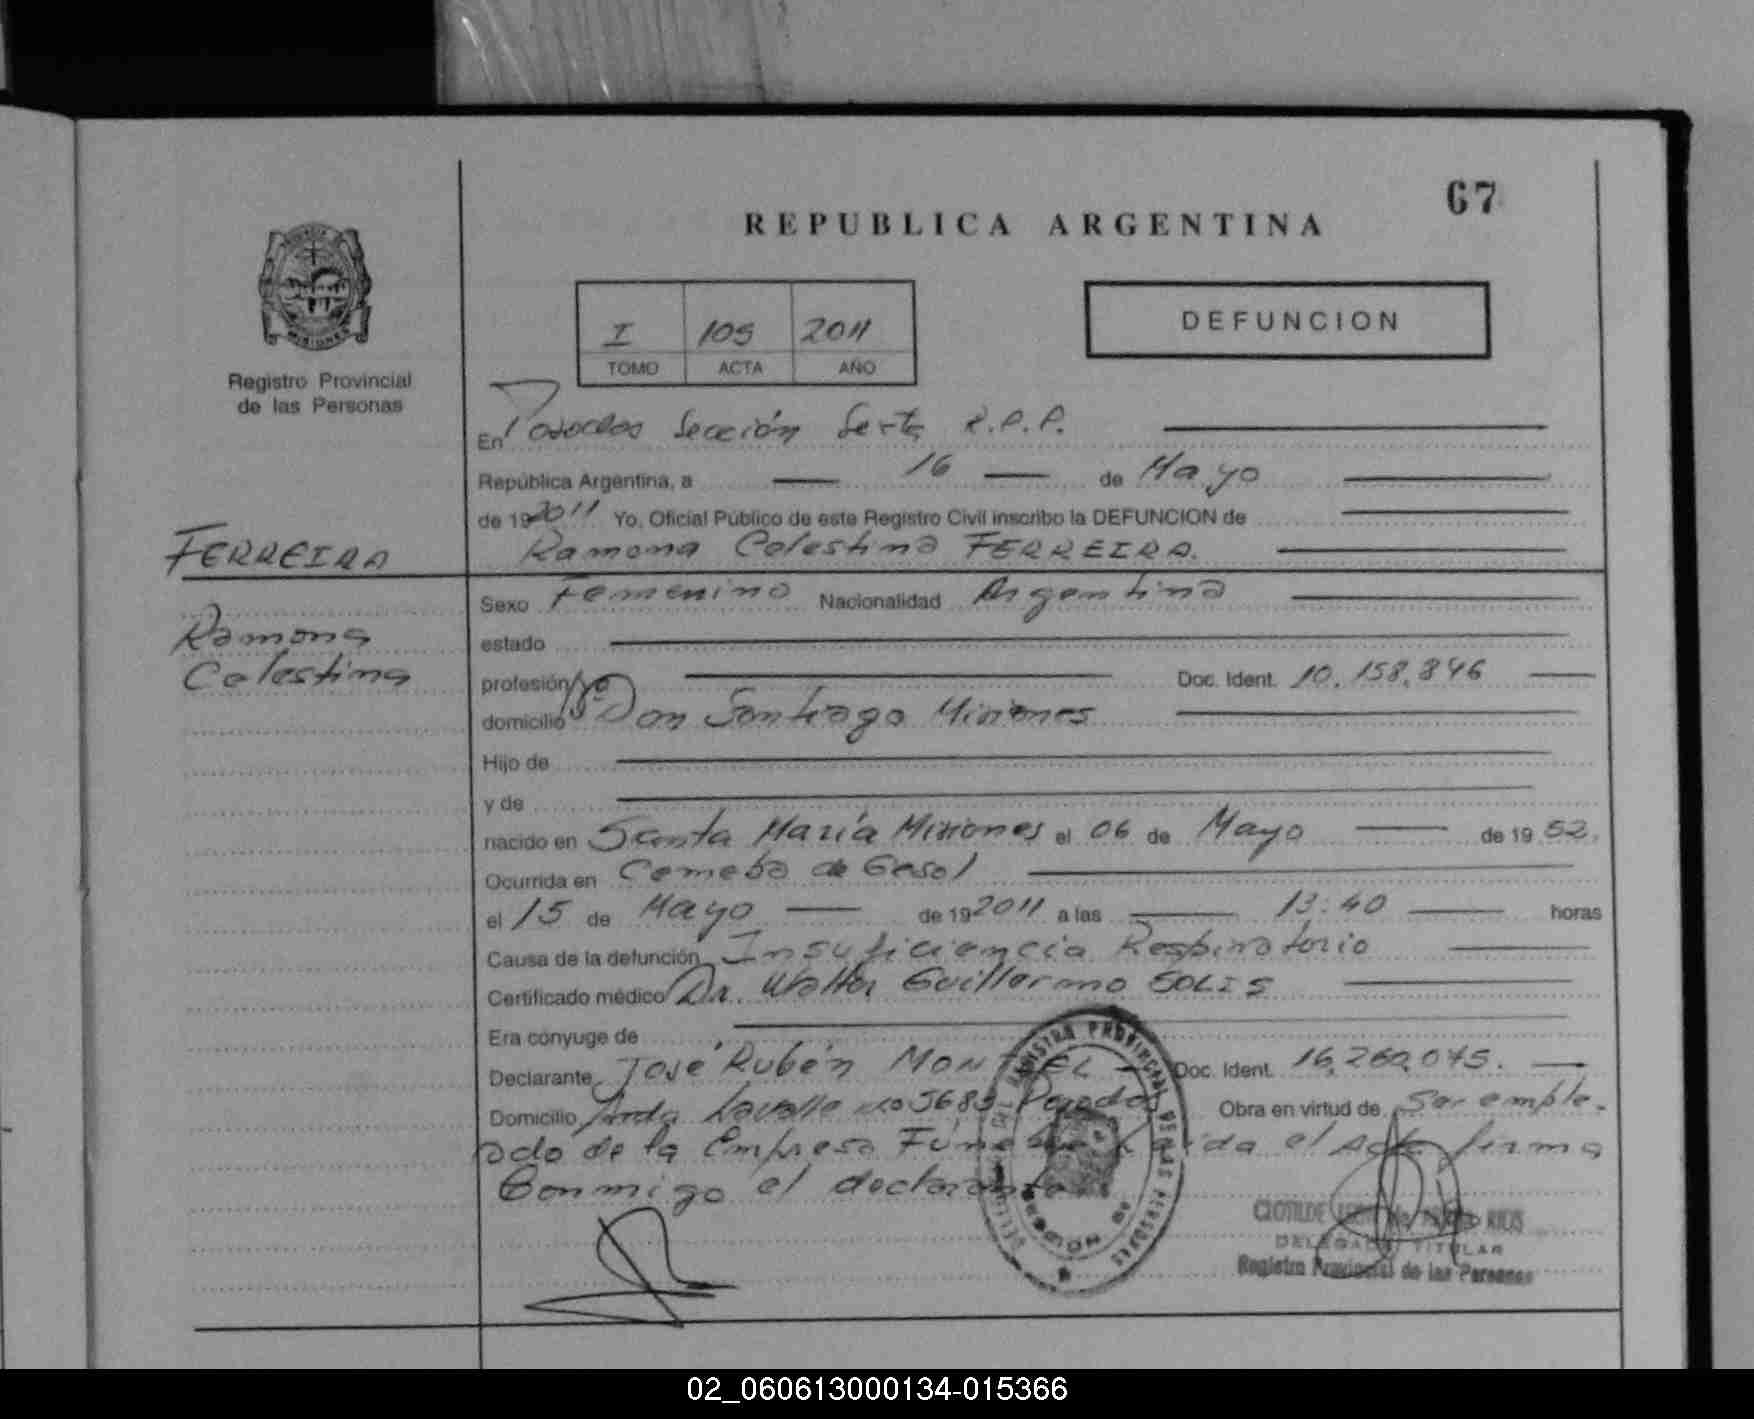 67
REPUBLICA ARGENTINA
I 105 2011
TOMO ACTA AÑO
DEFUNCION
MISIONES
Registro Provincial
de las Personas
En Posadas Sección Sexta R.P.P.
República Argentina, a 16 de Mayo
de 19 2011 Yo, Oficial Público de este Registro Civil inscribo la DEFUNCION de
FERREIRA
Ramona Celestina FERREIRA.
Ramona
Celestina
Sexo Femenino Nacionalidad Argentina
estado
profesión Doc. Ident. 10.158.846
domicilio Bº Don Santiago Misiones
Hijo de
y de
nacido en Santa María Misiones el 06 de Mayo de 19 52.
Ocurrida en Cemebo de Gesol
el 15 de Mayo de 19 2011 a las 13:40 horas
Causa de la defunción Insuficiencia Respiratorio
Certificado médico Dr. Walter Guillermo SOLIS
Era cónyuge de
Declarante José Rubén MONTIEL Doc. Ident. 16.260.075.
Domicilio Avda Lavalle No 5685 Posadas Obra en virtud de Ser emple-
ado de la Empresa Fúnebre Leída el Acta firma
Conmigo el declarante
CLOTILDE RIOS
DELEGADA TITULAR
Registro Provincial de las Personas
02_060613000134-015366